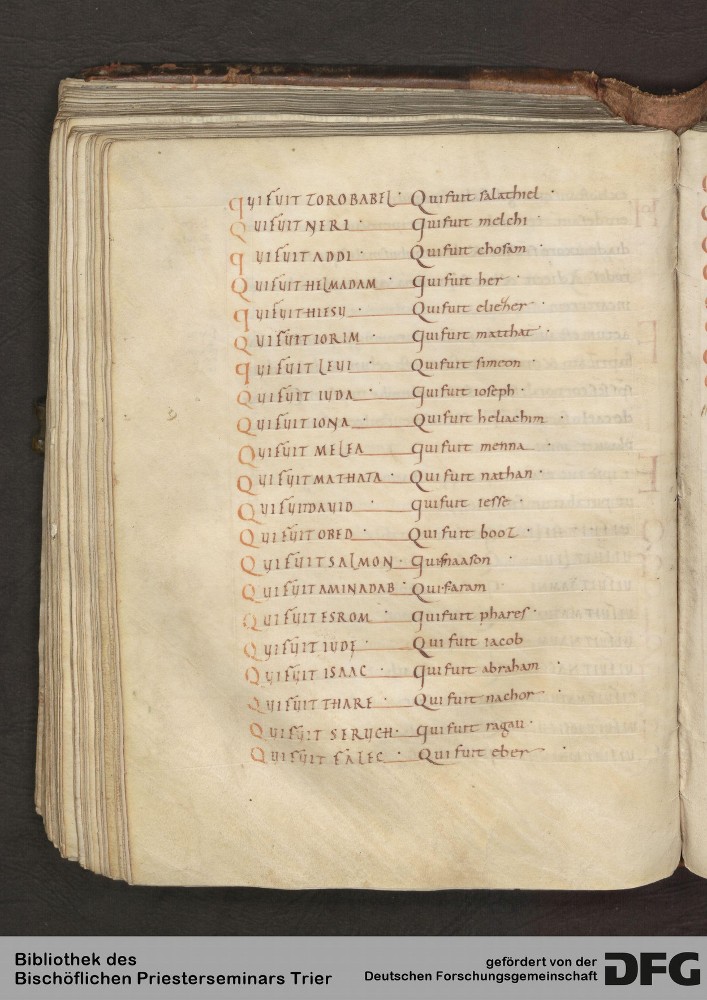 QUI FUIT ZOROBABEL · Qui fuit salathiel ·
QUI FUIT NERI · qui fuit melchi ·
QUI FUIT ADDI · Qui fuit chosam ·
QUI FUIT HELMADAM qui fuit her ·
QUI FUIT HIESU Qui fuit eliezer ·
QUI FUIT IORIM qui fuit matthat ·
QUI FUIT LEUI · Qui fuit simeon ·
QUI FUIT IUDA · qui fuit ioseph ·
QUI FUIT IONA Qui fuit heliachim ·
QUI FUIT MELEA qui fuit menna ·
QUI FUIT MATHATA · Qui fuit nathan ·
QUI FUIT DAUID · qui fuit iesse ·
QUI FUIT OBED Qui fuit booz ·
QUI FUIT SALMON · Qui f naason ·
QUI FUIT AMINADAB · Qui f aram ·
QUI FUIT ESROM · qui fuit phares ·
QUI FUIT IUDĘ · Qui fuit iacob
QUI FUIT ISAAC · qui fuit abraham ·
QUI FUIT THARE · Qui fuit nachor ·
QUI FUIT SERUCH · qui fuit ragau ·
QUI FUIT FALEC · Qui fuit eber ·
Bibliothek des
Bischöflichen Priesterseminars Trier
gefördert von der
Deutschen Forschungsgemeinschaft
DFG